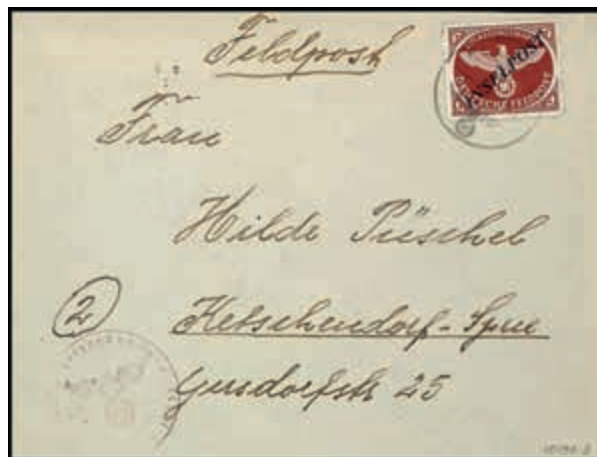 Feldpost
INSELPOST
DEUTSCHE FELDPOST
Frau
Hilde Püschel
2
Ketschendorf-Spree
Gersdorfstr 25